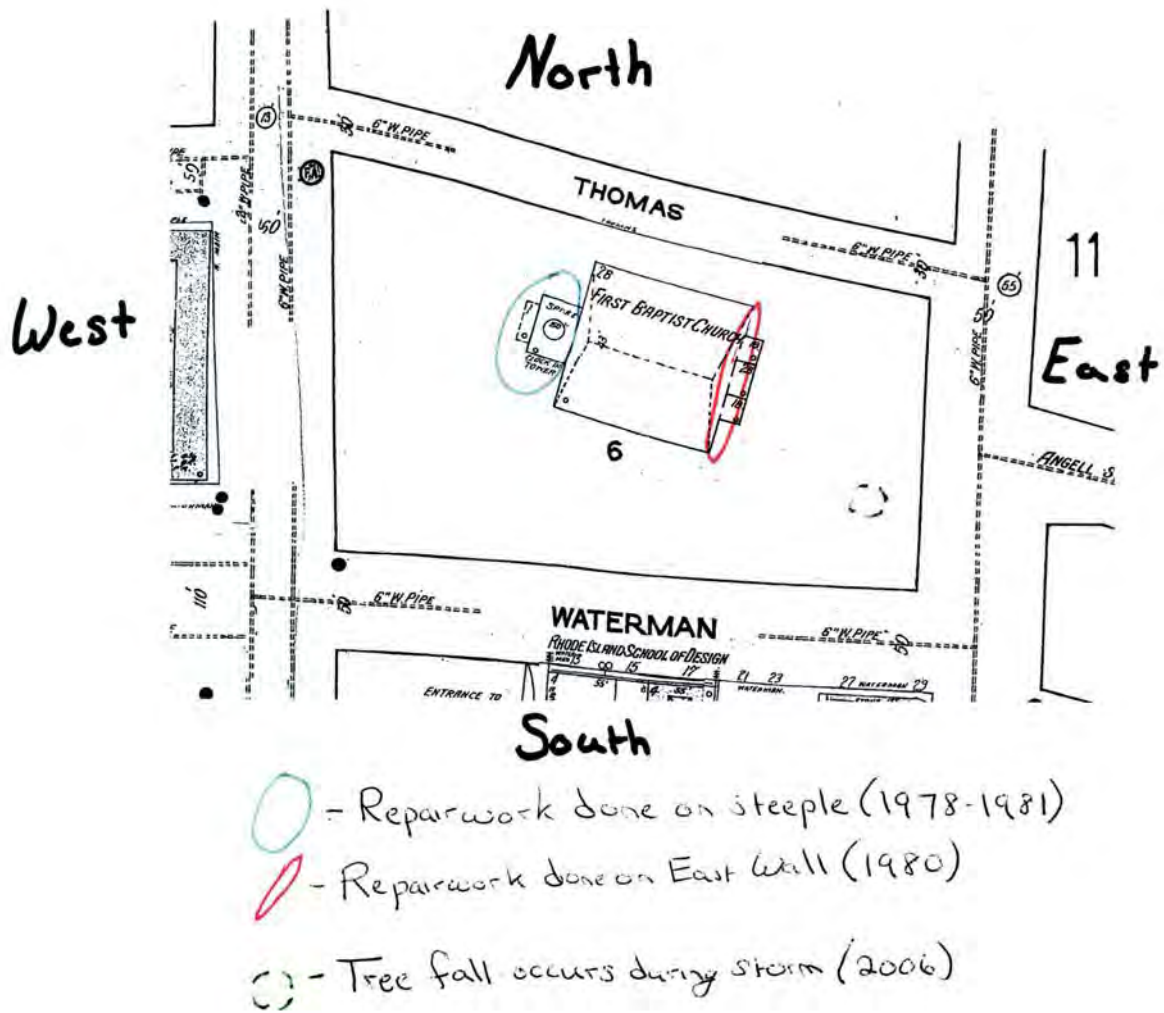 North
13
50'
6" W. PIPE
THOMAS
THOMAS
6" W. PIPE
50'
11
65
50'
F.A.
50'
8" W. PIPE
150'
6" W. PIPE
West
East
28
FIRST BAPTIST CHURCH
SPIRE
CLOCK IN
TOWER
6
6" W. PIPE
ANGELL S
110'
50'
6" W. PIPE
WATERMAN
6" W. PIPE
50'
RHODE ISLAND SCHOOL OF DESIGN
13 15 17 21 23 27 WATERMAN 29
WATERMAN.
55'
55'
ENTRANCE TO
South
- Repairwork done on steeple (1978-1981)
- Repairwork done on East Wall (1980)
- Tree fall occurs during storm (2006)